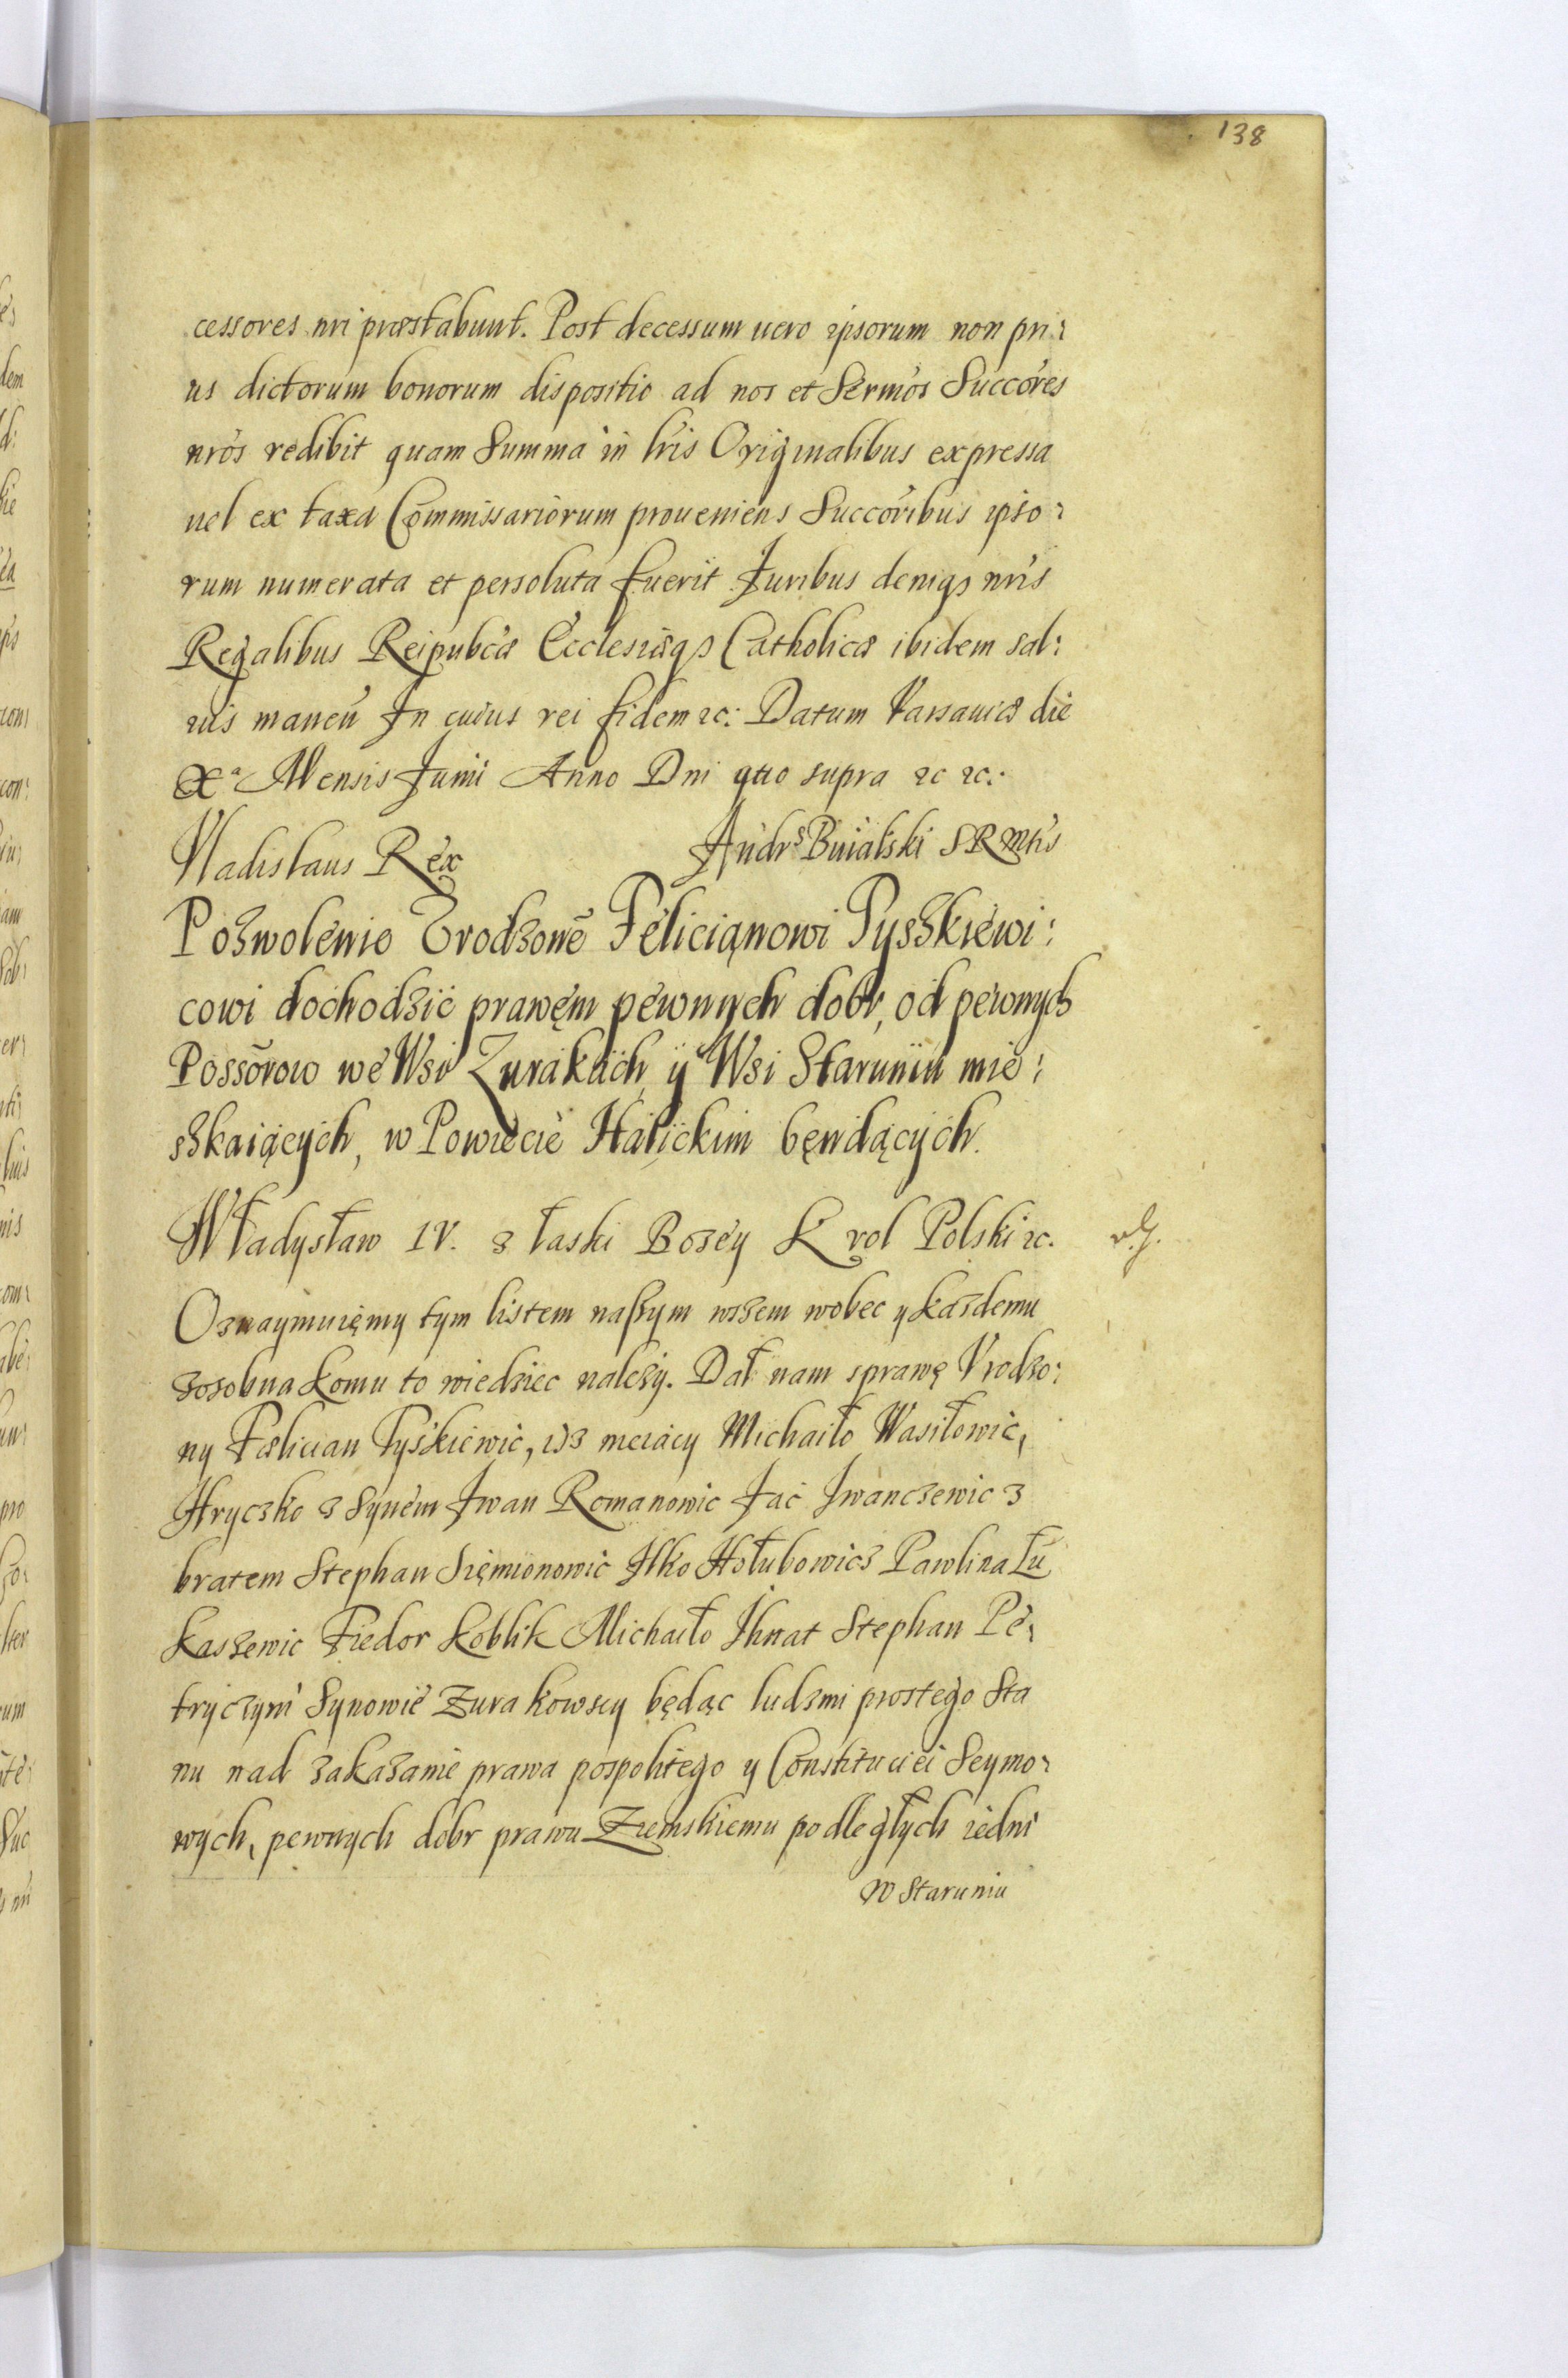 138
cessores nri præstabunt. Post decessum uero ipsorum non pri:
us dictorum bonorum dispositio ad nos et Sermos Succores
nros redibit quam Summa in lris Originalibus expressa
uel ex taxa Commissariorum proueniens Succoribus ipso:
rum numerata et persoluta fuerit Juribus deniqз nris
Regalibus Reipubcæ Ecclesiæqз Catholicæ ibidem sal:
uis manen In cuius rei fidem ꝛc: Datum Varsauiæ die
Xa Mensis Junii Anno Dni quo supra ꝛc ꝛc.
Vladislaus Rex Andrs Buialski SRMtis
Pozwolenie Vrodzone Felicianowi Tyszkiewi:
cowi dochodzić prawęm pewnych dobr, od pewnych
Possorow we Wsi Zurakach, ÿ Wsi Staruniu mie:
szkaiących, w Powiecie Halickim będących.
Władysław IV. z łaski Bozey Krol Polski ꝛc.
Oznaymuięmy tym listem naszym wszem wobec y kazdemu
zosobna komu to wiedziec nalezy. Dał nam sprawę Vrodzo:
ny Fælician Tyśkiewic, isz Michaiło Wasiłowic,
Hryczko z Synem Iwan Romanowic Jac Iwanczewic z
bratem Stephan Sięmionowic Ilko Hołubowicz Pawlina Łu
kaszewic Fiedor Koblik Michaiło Ihnat Stephan Pe:
tryczyni Synowie Zurakowscy będąc ludzmi prostego Sta
nu nad zakazanie prawa pospolitego y Constituciei Seymo:
wych, pewnych dobr prawu Ziemskiemu podległych iedni
W Staruniu